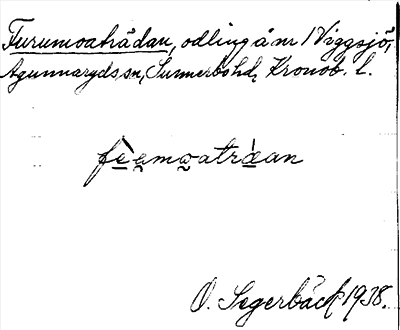 Furumoaträdan, odling å nr 1 Viggsjö,
Agunnaryds sn, Sunnerbo hd, Kronob. l.
O. Segerbäck 1938.